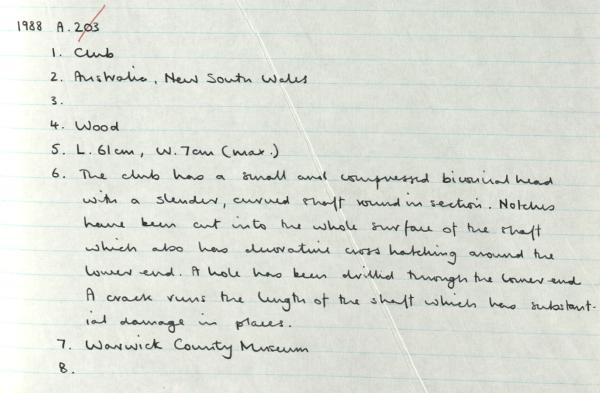 1988 A.203
1. Club
2. Australia, New South Wales
3.
4. Wood
5. L. 61cm, W. 7cm (max.)
6. The club has a small and compressed biconical head
with a slender, curved shaft round in section. Notches
have been cut into the whole surface of the shaft
which also has decorative cross hatching around the
lower end. A hole has been drilled through the lower end
A crack runs the length of the shaft which has substant-
ial damage in places.
7. Warwick County Museum
8.